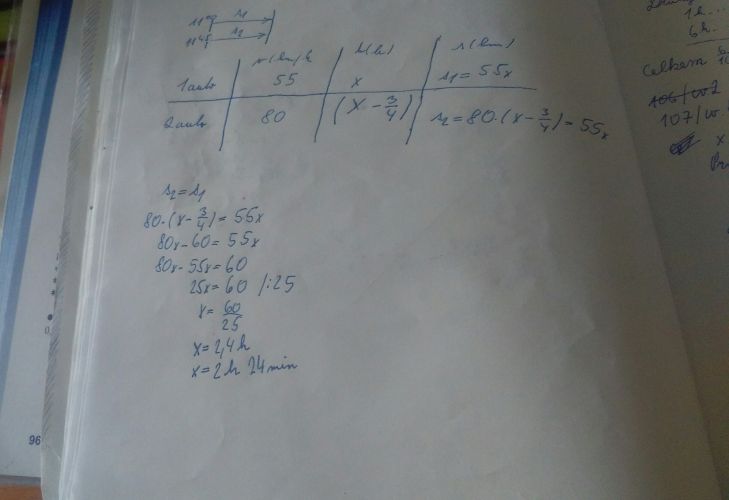 11⁰⁰ s₁
11⁴⁵ s₂
v(km/h t(h) s(km)
1auto 55 x s₁ = 55x
2auto 80 (x - 3/4) s₂ = 80·(x - 3/4) = 55x
s₂ = s₁
80·(x - 3/4) = 55x
80x - 60 = 55x
80x - 55x = 60
25x = 60 /:25
x = 60/25
x = 2,4h
x = 2h 24min
1h...
6h.
Celkem
107/w.
x
96